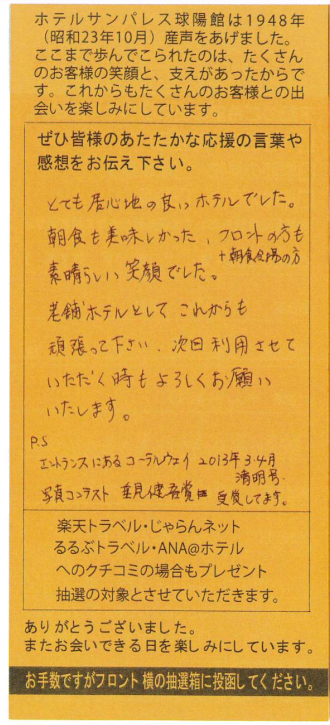 ホテルサンパレス球陽館は1948年
（昭和23年10月）産声をあげました。
ここまで歩んでこられたのは、たくさん
のお客様の笑顔と、支えがあったからで
す。これからもたくさんのお客様との出
会いを楽しみにしています。
ぜひ皆様のあたたかな応援の言葉や
感想をお伝え下さい。
とても居心地の良いホテルでした。
朝食も美味しかった、フロントの方も
+朝食会場の方
素晴らしい笑顔でした。
老舗ホテルとしてこれからも
頑張って下さい。次回利用させて
いただく時もよろしくお願い
いたします。
P.S
エントランスにあるコーラルウェイ 2013年3.4月
清明号.
写真コンテスト 垂見健吾賞 受賞してます。
楽天トラベル・じゃらんネット
るるぶトラベル・ANA@ホテル
へのクチコミの場合もプレゼント
抽選の対象とさせていただきます。
ありがとうございました。
またお会いできる日を楽しみにしています。
お手数ですがフロント横の抽選箱に投函してください。